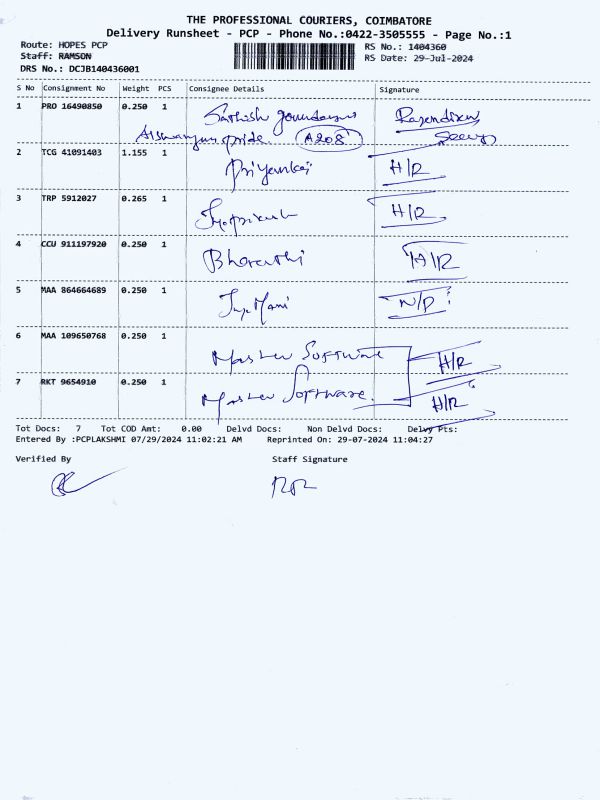 THE PROFESSIONAL COURIERS, COIMBATORE
Delivery Runsheet - PCP - Phone No.:0422-3505555 - Page No.:1
Route: HOPES PCP RS No.: 1404360
Staff: RAMSON RS Date: 29-Jul-2024
DRS No.: DCJB140436001
S No Consignment No Weight PCS Consignee Details Signature
1 PRO 16490850 0.250 1 Sathish Rajendiran
pride A208
2 TCG 41091403 1.155 1 Priyanka H/R
3 TRP 5912027 0.265 1 H/R
4 CCU 911197920 0.250 1 Bharathi H/R
5 MAA 864664689 0.250 1 Mani N/D
6 MAA 109650768 0.250 1 Master Software H/R
7 RKT 9654910 0.250 1 Master Software H/R
Tot Docs: 7 Tot COD Amt: 0.00 Delvd Docs: Non Delvd Docs: Delvy Pts:
Entered By :PCPLAKSHMI 07/29/2024 11:02:21 AM Reprinted On: 29-07-2024 11:04:27
Verified By Staff Signature